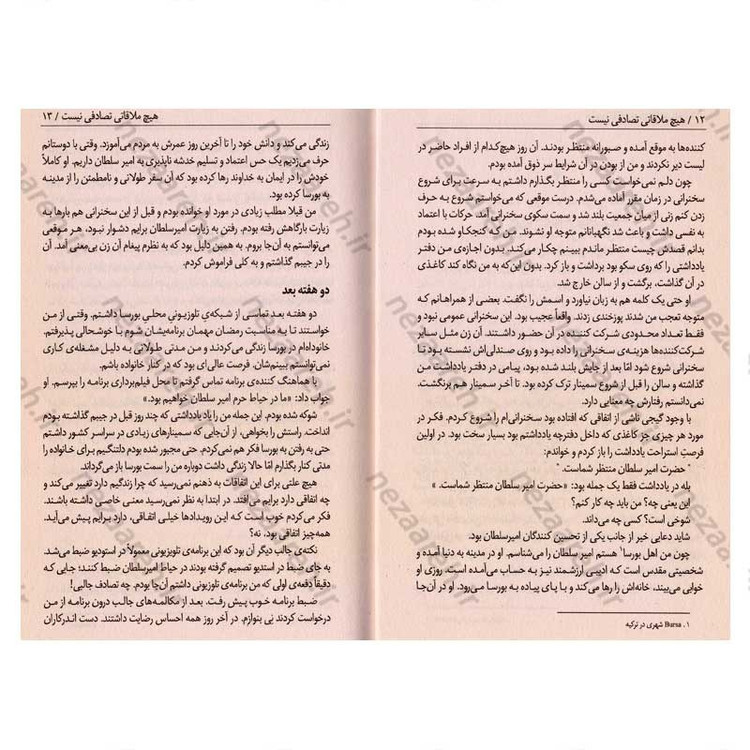 ۱۲ / هیچ ملاقاتی تصادفی نیست
کننده‌ها به موقع آمده و صبورانه منتظر بودند. آن روز هیچ‌کدام از افراد حاضر در
لیست دیر نکردند و من از بودن در آن شرایط سر ذوق آمده بودم.
چون دلم نمی‌خواست کسی را منتظر بگذارم داشتم به سرعت برای شروع
سخنرانی در زمان مقرر آماده می‌شدم. درست موقعی که می‌خواستم شروع به حرف
زدن کنم زنی از میان جمعیت بلند شد و سمت سکوی سخنرانی آمد. حرکات با اعتماد
به نفسی داشت و باعث شد نگهبانانم متوجه او نشوند. من که کنجکاو شده بودم
بدانم قصدش چیست منتظر ماندم ببینم چکار می‌کند. بدون اجازه‌ی من دفتر
یادداشتی را که روی سکو بود برداشت و باز کرد. بدون این‌که به من نگاه کند کاغذی
در آن گذاشت، برگشت و از سالن خارج شد.
او حتی یک کلمه هم به زبان نیاورد و اسمش را نگفت. بعضی از همراهانم که
متوجه تعجب من شدند پوزخندی زدند. واقعاً عجیب بود. این سخنرانی عمومی نبود و
فقط تعداد محدودی شرکت کننده در آن حضور داشتند. آن زن مثل سایر
شرکت‌کننده‌ها هزینه‌ی سخنرانی را داده بود و روی صندلی‌اش نشسته بود تا
سخنرانی شروع شود امّا بعد از جایش بلند شده بود، پیامی در دفتر یادداشت من
گذاشته و سالن را قبل از شروع سمینار ترک کرده بود. تا آخر سمینار هم برنگشت.
نمی‌دانستم رفتارش چه معنایی دارد.
با وجود گیجی ناشی از اتفاقی که افتاده بود سخنرانی‌ام را شروع کردم. فکر در
مورد هر چیزی جز کاغذی که داخل دفترچه یادداشتم بود بسیار سخت بود. در اولین
فرصتِ استراحت یادداشت را باز کردم و خواندم:
" حضرت امیر سلطان منتظر شماست. "
بله در یادداشت فقط یک جمله بود: « حضرت امیر سلطان منتظر شماست. »
این یعنی چه؟ من باید چه کار کنم؟
شوخی است؟ کسی چه می‌داند.
شاید دعایی خیر از جانب یکی از تحسین کنندگان امیرسلطان بود.
چون من اهل بورسا¹ هستم امیر سلطان را می‌شناسم. او در مدینه به دنیا آمده و
شخصیتی مقدس است که ادیبی ارزشمند نیز به حساب می‌آمده است. روزی او
خوابی می‌بیند، خانه‌اش را رها می‌کند و با پای پیاده به بورسا می‌رود. او در آن‌جا
۱ . Bursa شهری در ترکیه
هیچ ملاقاتی تصادفی نیست / ۱۳
زندگی می‌کند و دانش خود را تا آخرین روز عمرش به مردم می‌آموزد. وقتی با دوستانم
حرف می‌زدیم یک حس اعتماد و تسلیم خدشه ناپذیری به امیر سلطان داریم. او کاملاً
خودش را در ایمان به خداوند رها کرده بود که آن سفر طولانی و نامطمئن را از مدینه
به بورسا کرده بود.
من قبلا مطلب زیادی در مورد او خوانده بودم و قبل از این سخنرانی هم بارها به
زیارت بارگاهش رفته بودم. رفتن به زیارت امیرسلطان برایم دشوار نبود، هر موقعی
می‌توانستم به آن‌جا بروم. به همین دلیل بود که به نظرم پیغام آن زن بی‌معنی آمد. آن
را در جیبم گذاشتم و به کلی فراموش کردم.
دو هفته بعد
دو هفته بعد تماسی از شبکه‌ی تلوزیونیِ محلیِ بورسا داشتم. وقتی از من
خواستند تا به مناسبت رمضان مهمان برنامه‌یشان شوم با خوشحالی پذیرفتم.
خانواده‌ام در بورسا زندگی می‌کردند و من مدتی طولانی به دلیل مشغله‌ی کاری
نمی‌توانستم ببینمشان. فرصت عالی‌ای بود که در کنار خانواده باشم.
با هماهنگ کننده‌ی برنامه تماس گرفتم تا محل فیلم‌برداری برنامه را بپرسم. او
جواب داد: «ما در حیاط حرم امیر سلطان خواهیم بود.»
شوکه شده بودم. این جمله من را یاد یادداشتی که چند روز قبل در جیبم گذاشته بودم
انداخت. راستش را بخواهی، از آن‌جایی که سمینارهای زیادی در سراسر کشور داشتم
حتی به رفتن به بورسا فکر هم نمی‌کردم. حتی مجبور شده بودم دلتنگیم برای خانواده را
مدتی کنار بگذارم امّا حالا زندگی داشت دوباره من را سمت بورسا باز می‌گرداند.
هیچ علتی برای این اتفاقات به ذهنم نمی‌رسید که چرا زندگیم دارد تغییر می‌کند و
چه اتفاقی دارد برایم می‌افتد. در ابتدا به نظر نمی‌رسید معنی خاصی داشته باشند.
فکر می‌کردم خوب است که این رویدادها خیلی اتفاقی، دارد برایم پیش می‌آید.
همه‌چیز اتفاقی بود، نه؟
نکته‌ی جالب دیگر آن بود که این برنامه‌ی تلویزیونی معمولاً در استودیو ضبط می‌شد.
به جای ضبط در استدیو تصمیم گرفته بودند در حیاط امیرسلطان ضبط کنند؛ جایی که
دقیقاً دفعه‌ی اولی که من برنامه‌ی تلوزیونی داشتم آن‌جا بودم. چه تصادف جالبی!
ضبط برنامه خوب پیش رفت. بعد از مکالمه‌های جالب درون برنامه از من
درخواست کردند نِی بنوازم. در آخر روز همه احساس رضایت داشتند. دست اندرکاران
nezaareh.ir